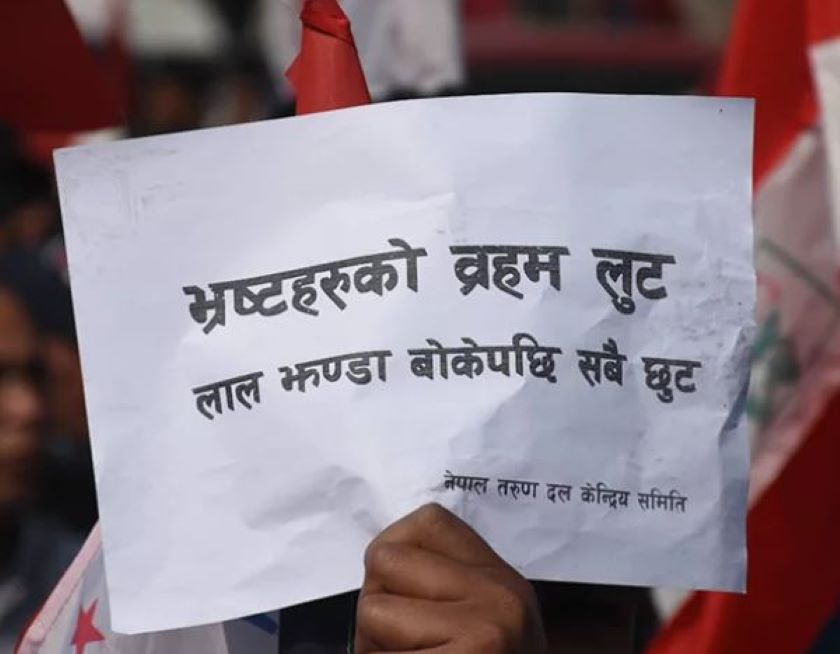 भ्रष्टहरुको व्रहम लुट
लाल झण्डा बोकेपछि सबै छुट
नेपाल तरुण दल केन्द्रिय समिति